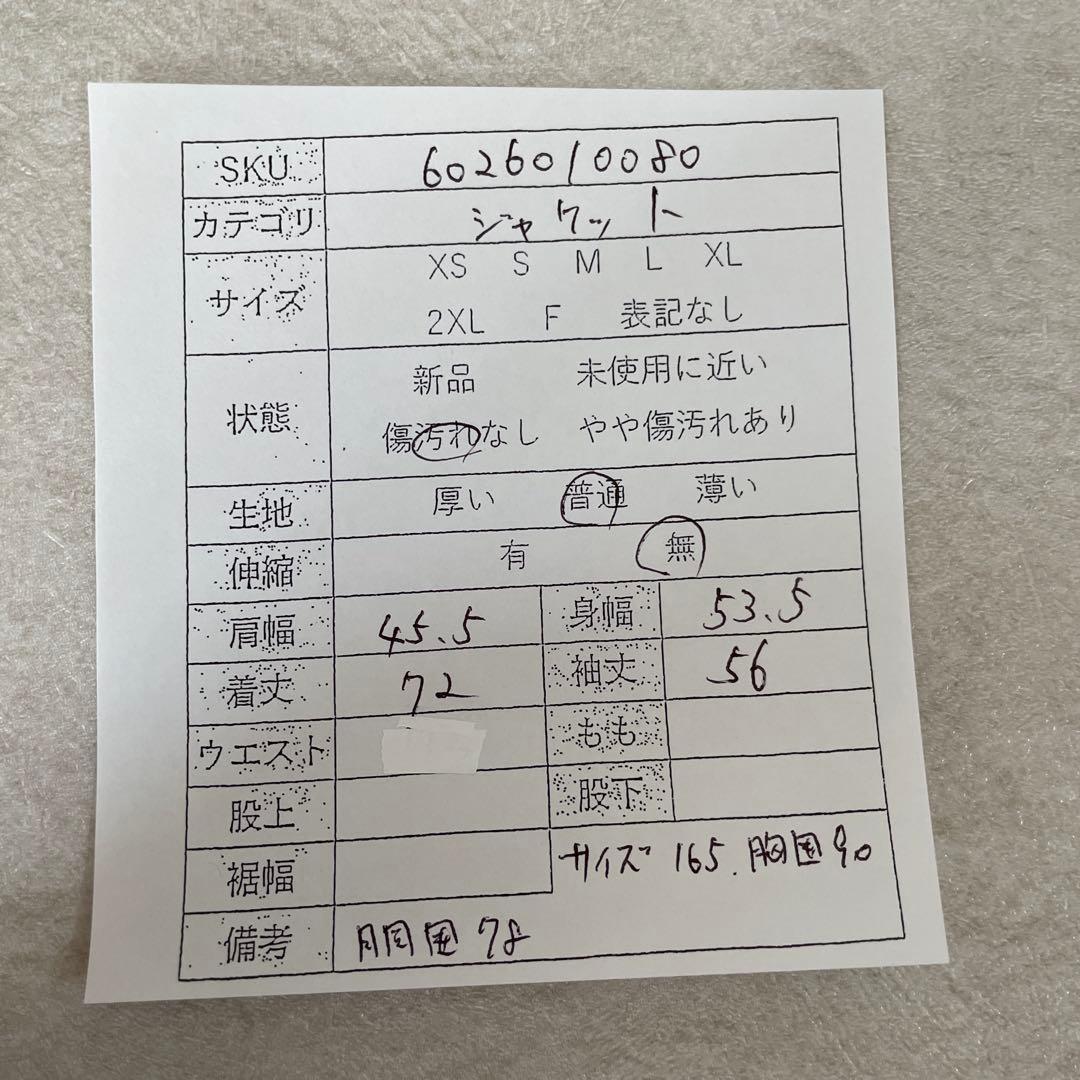 SKU 6026010080
カテゴリ ジャケット
サイズ XS S M L XL
2XL F 表記なし
状態 新品 未使用に近い
傷汚れなし やや傷汚れあり
生地 厚い 普通 薄い
伸縮 有 無
肩幅 45.5 身幅 53.5
着丈 72 袖丈 56
ウエスト もも
股上 股下
裾幅 サイズ 165.胸囲90
備考 胴囲78